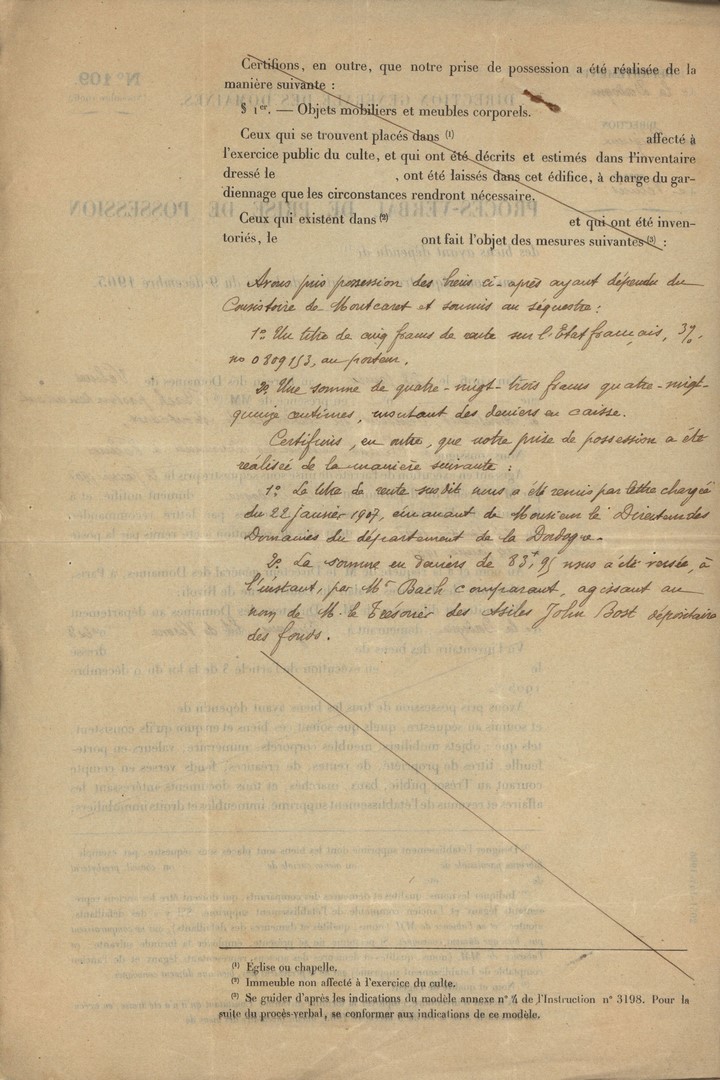 Certifions, en outre, que notre prise de possession a été réalisée de la
manière suivante :
§ 1er. — Objets mobiliers et meubles corporels.
Ceux qui se trouvent placés dans (1) affecté à
l'exercice public du culte, et qui ont été décrits et estimés dans l'inventaire
dressé le , ont été laissés dans cet édifice, à charge du gar-
diennage que les circonstances rendront nécessaire.
Ceux qui existent dans (2) et qui ont été inven-
toriés, le ont fait l'objet des mesures suivantes (3) :
Avons pris possession des biens ci-après ayant dépendu du
Consistoire de Montcaret et soumis au séquestre :
1º Un titre de cinq francs de rente sur l'Etat français, 3%,
no 0809153, au porteur.
2º Une somme de quatre-vingt-trois francs quatre-vingt-
quinze centimes, montant des deniers en caisse.
Certifions, en outre, que notre prise de possession a été
réalisée de la manière suivante :
1º Le titre de rente susdit nous a été remis par lettre chargée
du 22 janvier 1907, émanant de Monsieur le Directeur des
Domaines du département de la Dordogne.
2º La somme en deniers de 83f,95 nous a été versée, à
l'instant, par Mr Bach comparant, agissant au
nom de M. le Trésorier des Asiles John Bost dépositaire
des fonds.
(1) Église ou chapelle.
(2) Immeuble non affecté à l'exercice du culte.
(3) Se guider d'après les indications du modèle annexe nº 4 de l'Instruction nº 3198. Pour la
suite du procès-verbal, se conformer aux indications de ce modèle.